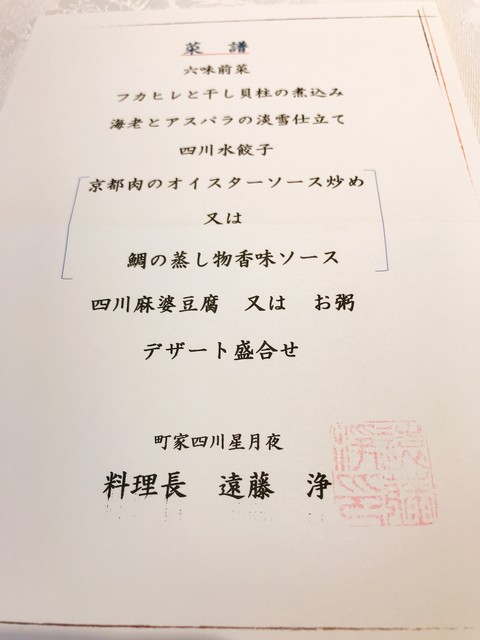 菜譜
六味前菜
フカヒレと干し貝柱の煮込み
海老とアスパラの淡雪仕立て
四川水餃子
京都肉のオイスターソース炒め
又は
鯛の蒸し物香味ソース
四川麻婆豆腐　又は　お粥
デザート盛合せ
町家四川星月夜
料理長　遠藤　浄